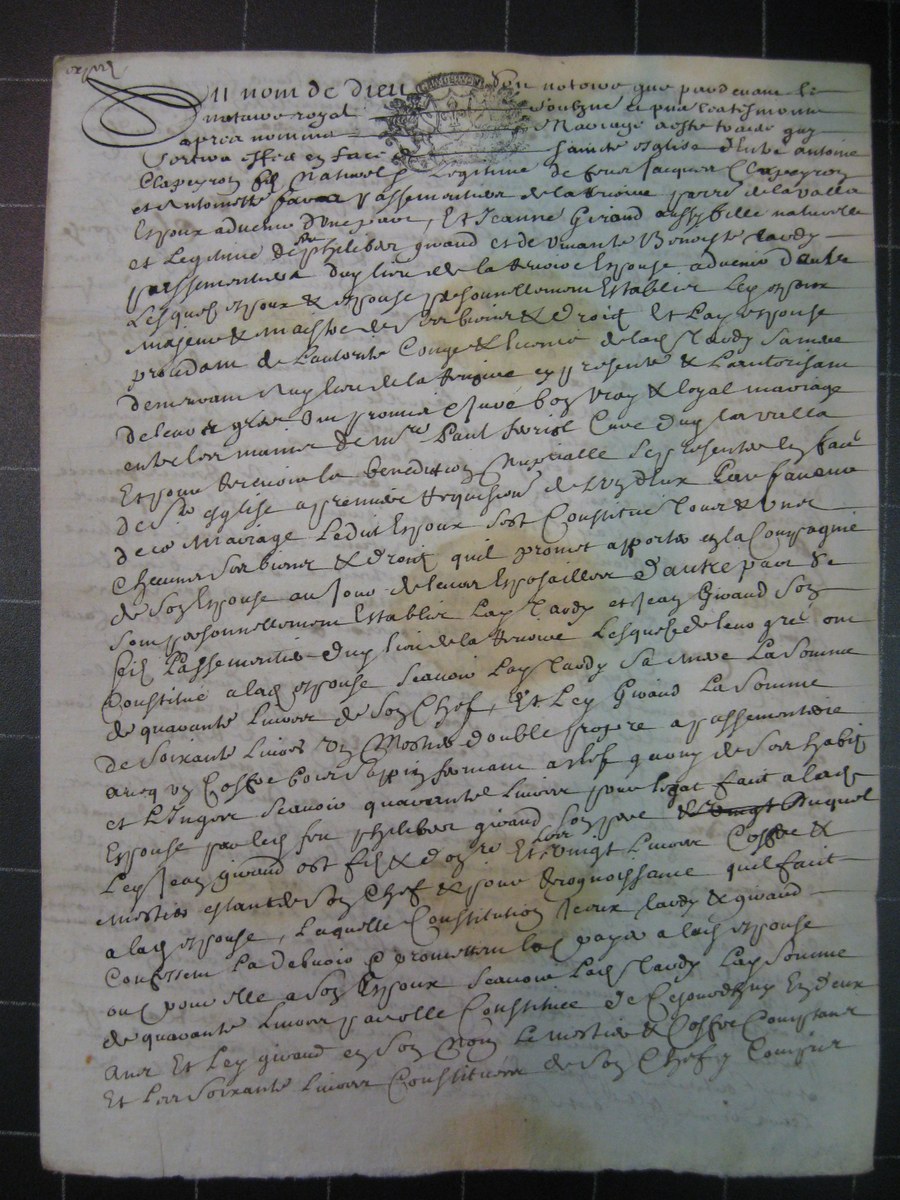 Au nom de dieu soit notoire que pardevant le
notaire royal soubzné et pnts les tesmoins
apres nommes Mariage a esté traicté quy
sortira effect en face saincte esglise Entre antoine
Clapeyron filz naturel & legitime de feux Jacques Clapeyron
et Antoinette passementier de la parre de lavalla
Espoux advenir d'une part, Et Jeanne Giraud aussy fille naturelle
et Legitime de feu philibert giraud et de vivante Benoiste tardy
passementiere duy lieu de la Espouse advenir d'autre
Lesquelz espoux & espouse personnellement Establier Ley espoux
majeur & maistre de ses biens & droitz Et Lay espouse
procedam de Lautorité Congé & licence de lad tardy sa mere
demeurant duy lieu de la cy presente & Lautorisam
de leur gré Ont promis & juré bon vray & loyal mariage
entre les mains de mre Paul Curé duy lavalla
Et pour recevoir la benediction Nuptialle se presenter en face
de Ste esglise a premiere requisition de l'un d'eux En faveur
de ce Mariage Ledit Espoux sest Constitué tous & uns
Chacuns ses biens & droitz quil promet apporter en la Compagnie
de son Espouse au jour de leurs Espousailles d'autre part se
som personnellement Establier Lay tardy et Jean Giraud son
filz Passementier duy lieu de la Lesquelz de leur gré ont
Constitué a lad espouse scavoir Lay tardy sa mere La somme
de quarante Livres de son Chef, Et Ley Giraud La somme
de soixante Livres Un Mestier double propre a passementiere
avec un Coffre bois sappin fermam a clef garny de ses habitz
et Linges scavoir quarante Livres pour legat faict a lad
Espouse par led feu philibert giraud son pere et vingt duquel
Ley Jean giraud est filz & et les vingt Livres Coffre &
mestier estant de son Chef & pour recognoissance quil faict
a lad espouse, Laquelle Constitution Iceux tardy & giraud
Confessem La debvoir & promettem la payer a lad espouse
ou pour elle a son Espoux scavoir Lad tardy Lay somme
de quarante Livres par elle Constituée de Cejourdhuy En deux
ans Et Ley giraud en son nom Le mestier & Coffre Comptant
Et Les soixante Livres Constituees de son Chef y Compris